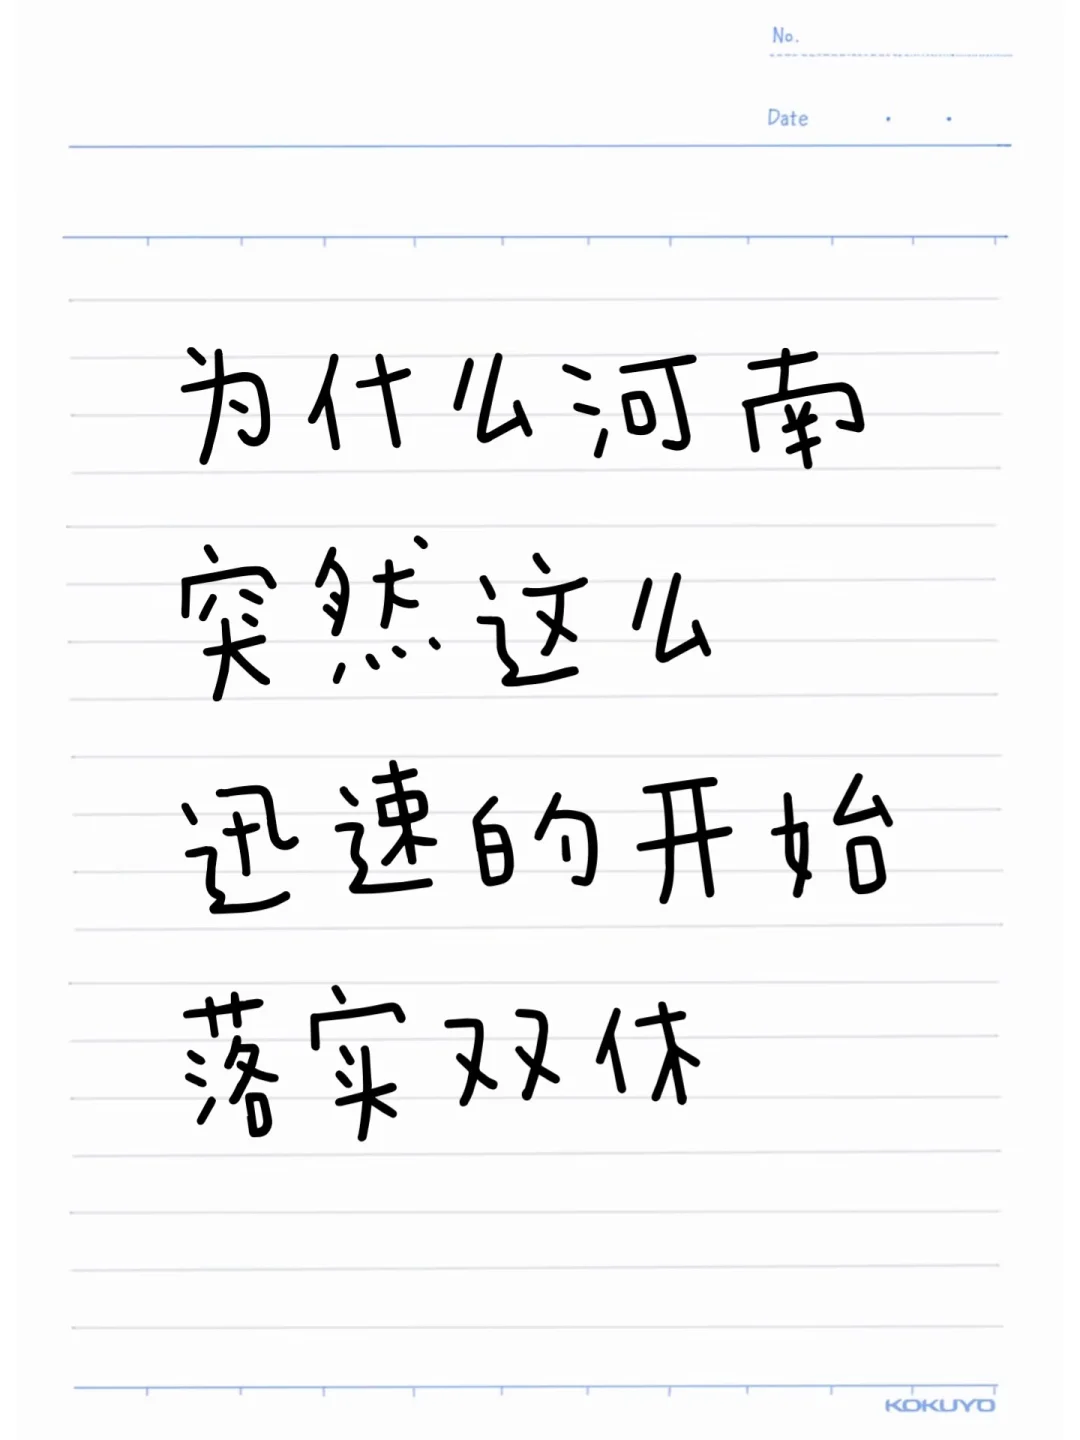 No.
Date
为什么河南
突然这么
迅速的开始
落实双休
KOKUYO